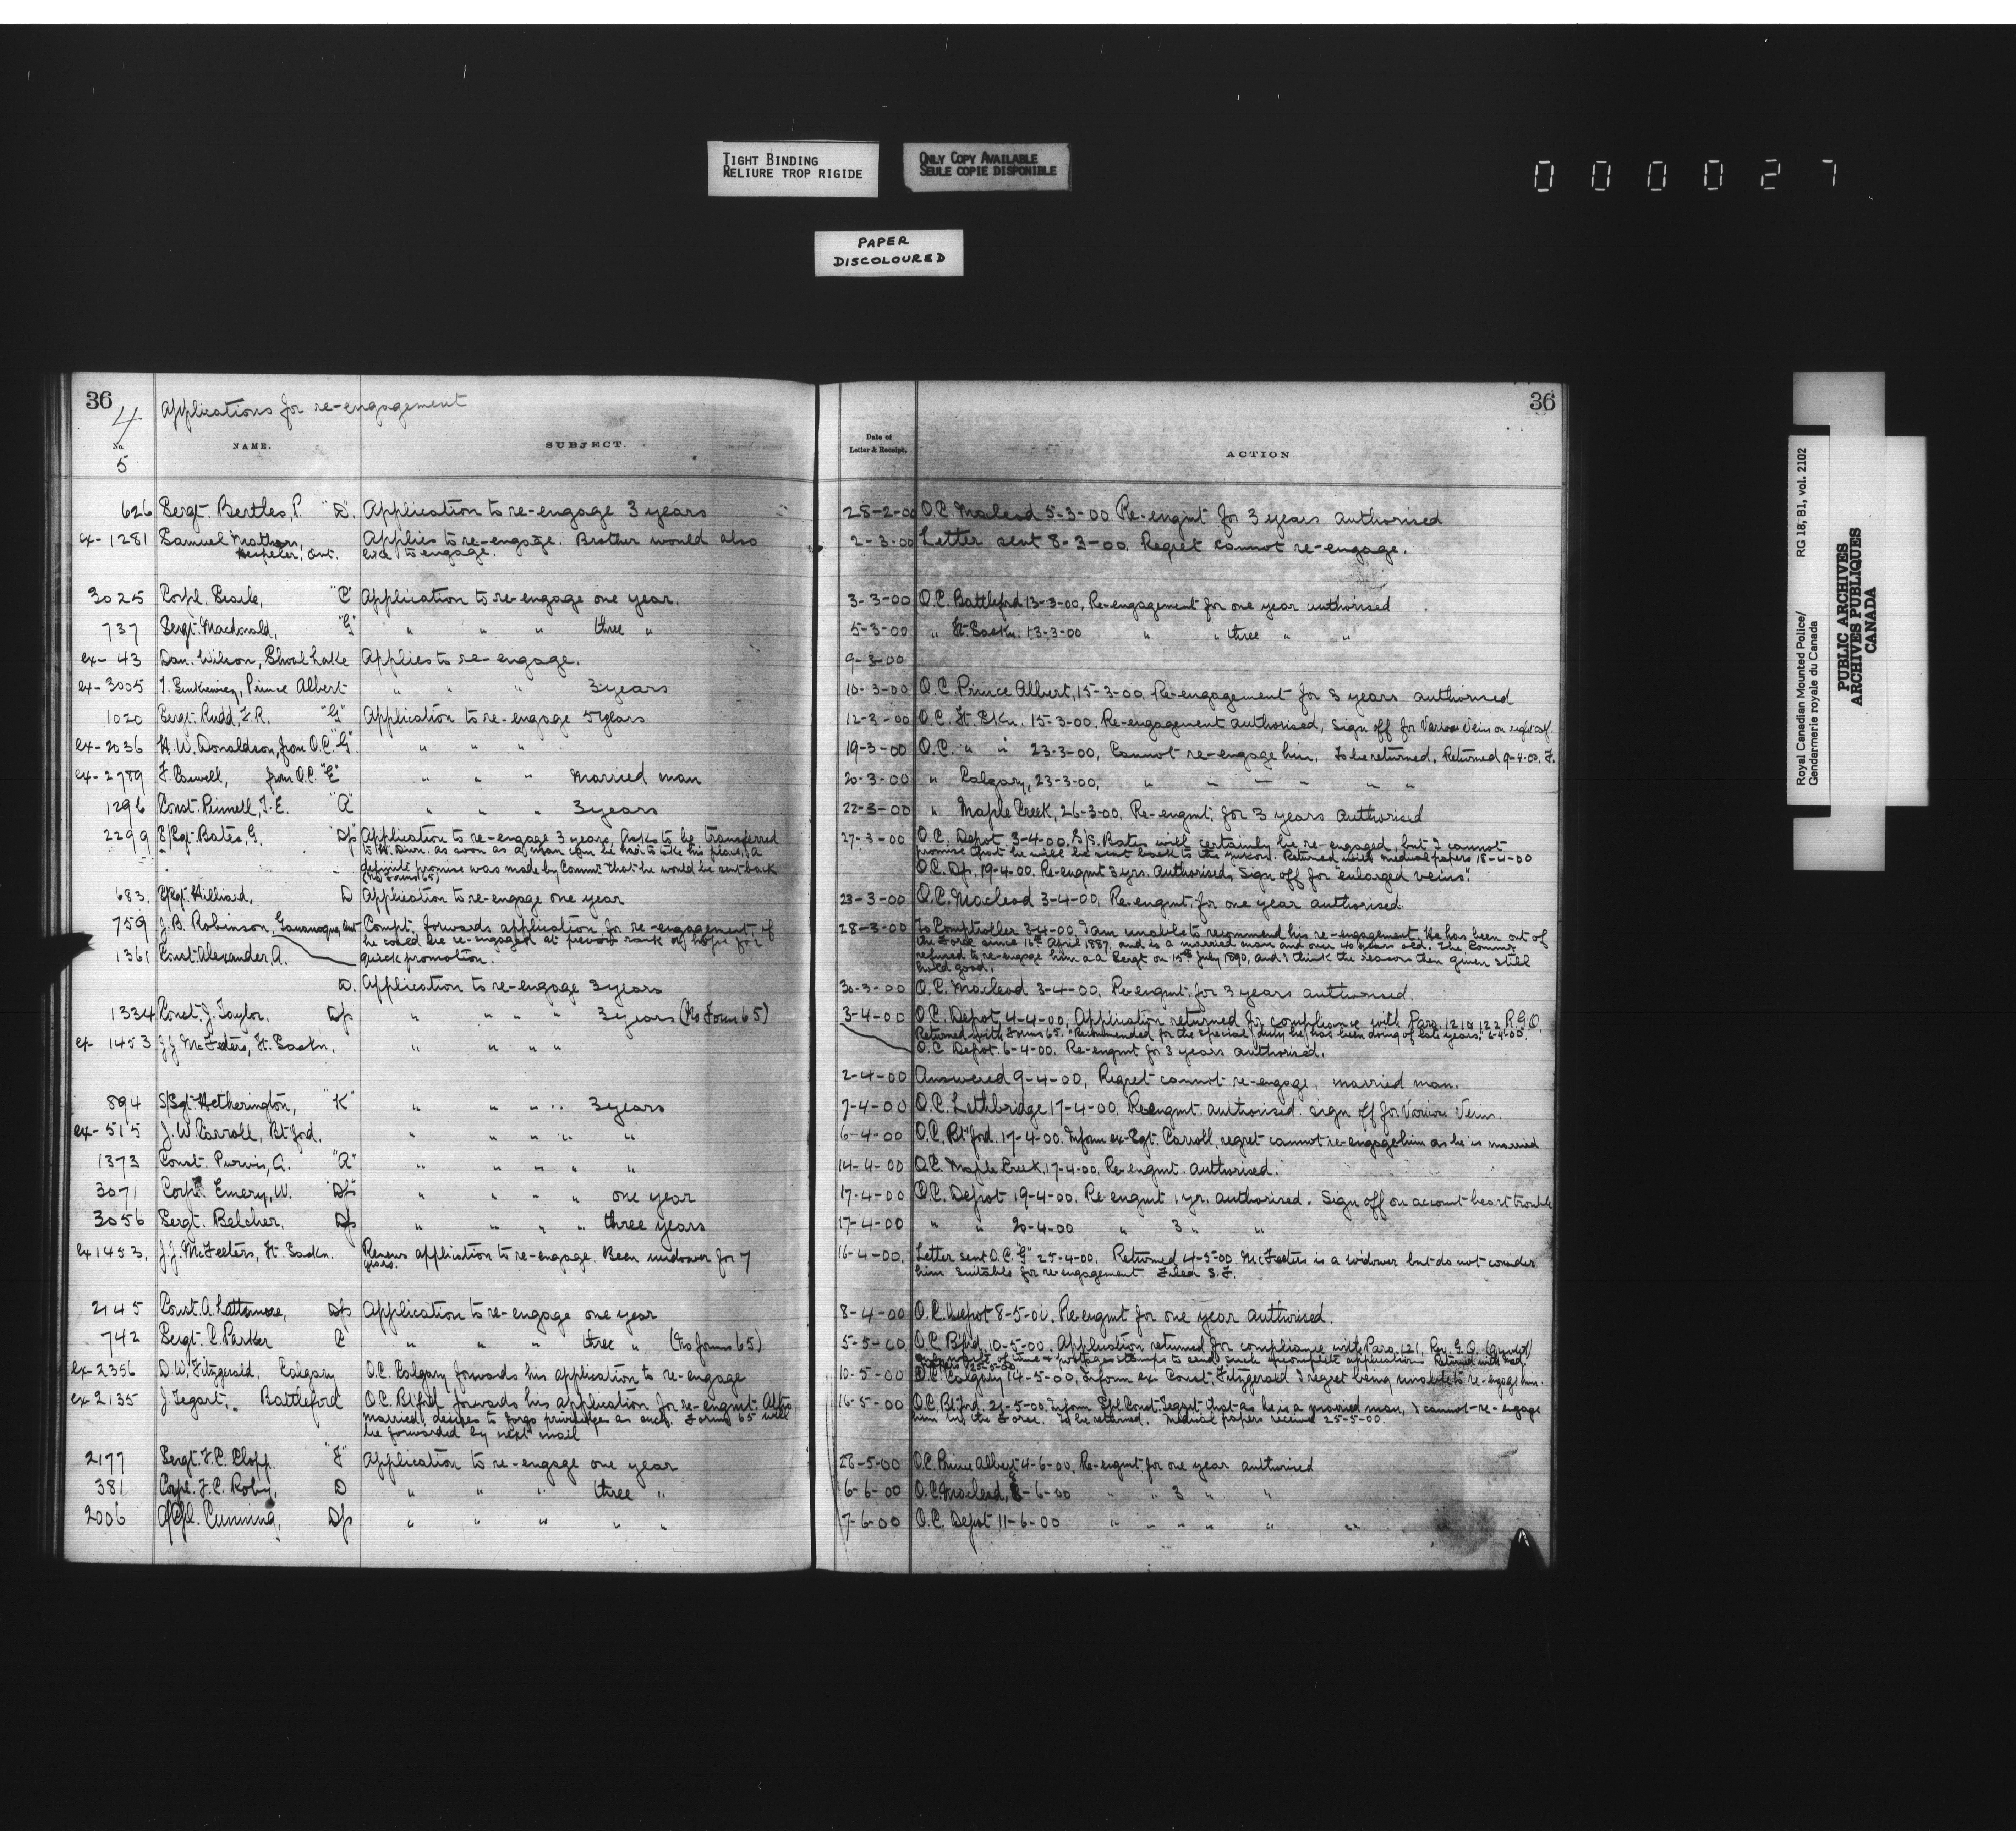 TIGHT BINDING
RELIURE TROP RIGIDE
ONLY COPY AVAILABLE
SEULE COPIE DISPONIBLE
000027
PAPER
DISCOLOURED
36
4
Applications for re-engagement
No.
5
NAME.
SUBJECT.
626 Sergt. Bertles, P. "D". Application to re-engage 3 years
ex-1281 Samuel Mathers, Applies to re-engage. Brother would also
Hespeler, Ont. like to engage.
3025 Corpl. "C" Application to re-engage one year.
737 Sergt. Macdonald, "G" " " " three "
ex-43 Dan. Wilson, Shoal Lake Applies to re-engage.
ex-3005 Prince Albert " " " 3 years
1020 Sergt. Rudd, F.R. "G" Application to re-engage 5 years
ex-2036 H.W. Donaldson, from O.C. "G". " " "
ex-2779 F. Caswell, from O.C. "E" " " " Married man
1296 Const. Pinnell, T.E. "A" " " 3 years
2299 S/Sgt. Bates, G. "Dp" Application to re-engage 3 years. Asks to be transferred
to as soon as a man can be had to take his place, a
definite promise was made by Commr. that he would be sent back
(No Form 65)
683, Hilliard, D Application to re-engage one year
759 J.B. Robinson, Gananoque, Ont Compt. forwards application for re-engagement, if
he could be re-engaged at previous rank or hope for
1361 Const. Alexander, A. quick promotion.
D. Application to re-engage 3 years
1334 Const. J. Taylor, Dp " " " " 3 years (No Form 65)
ex 1453 J.J. McFeeters, Ft. Saskn. " " " "
894 S/Sgt. Hetherington, "K" " " " " 3 years
ex-515 J.W. Carroll, Bt'ford. " " " " "
1373 Const. Purvis, A. "A" " " " " "
3071 Corpl. Emery, W. "Dp" " " " " one year
3056 Sergt. Belcher, Dp " " " " three years
ex 1453, J.J. McFeeters, Ft. Saskn. Renews application to re-engage. Been widower for 7
years.
2145 Const. A. Lattimore, Dp Application to re-engage one year
742 Sergt. C. Parker C " " " three " (No form 65)
ex-2356 D.W. Fitzgerald, Calgary O.C. Calgary forwards his application to re-engage
ex-2135 J. Tegart, Battleford O.C. Bt'ford forwards his application for re-engmt. Altho
married, desires to forgo privileges as such. Form 65 will
be forwarded by next mail
2177 Sergt. F.C. Clopp. "F" Application to re-engage one year
381 Corpl. F.C. Roby, D " " " three "
2006 A/Cpl. Cumming, Dp " " " " "
36
Date of
Letter & Receipt,
ACTION
28-2-00 O.C. Macleod 5-3-00. Re-engmt for 3 years authorised
2-3-00 Letter sent 8-3-00. Regret cannot re-engage.
3-3-00 O.C. Battleford 13-3-00. Re-engagement for one year authorised
5-3-00 " Ft. Saskn. 13-3-00 " " three " "
9-3-00
10-3-00 O.C. Prince Albert, 15-3-00. Re-engagement for 3 years authorised
12-3-00 O.C. Ft. Skn. 15-3-00. Re-engagement authorised, Sign off for Varicose Vein on right calf.
19-3-00 O.C. " " 23-3-00, Cannot re-engage him. To be returned. Returned 9-4-00. F.
20-3-00 " Calgary, 23-3-00, " " — — " "
22-3-00 " Maple Creek, 26-3-00. Re-engmt. for 3 years authorised
27-3-00 O.C. Depot 3-4-00. S/S. Bates will certainly be re-engaged, but I cannot
promise that he will be sent back to the Yukon. Returned with medical papers 18-4-00
O.C. Dp. 19-4-00. Re-engmt 3 yrs. authorised, Sign off for "enlarged veins".
23-3-00 O.C. Macleod 3-4-00. Re-engmt. for one year authorised.
28-3-00 To Comptroller 3-4-00. I am unable to recommend his re-engagement. He has been out of
the Force since 16th April 1887, and is a married man and over 40 years old. The Commr.
refused to re-engage him as a Sergt on 15th July 1890, and I think the reasons then given still
hold good.
30-3-00 O.C. Macleod 3-4-00, Re-engmt. for 3 years authorised.
3-4-00 O.C. Depot 4-4-00. Application returned for compliance with Para 121 & 122 R.G.O.
Returned with Form 65. "Recommended for the special duty he has been doing of late years." 6-4-00.
O.C. Depot. 6-4-00. Re-engmt for 3 years authorised.
2-4-00 Answered 9-4-00, Regret cannot re-engage, married man.
7-4-00 O.C. Lethbridge 17-4-00. Re-engmt. authorised. Sign off for Varicose Veins.
6-4-00 O.C. Bt'ford. 17-4-00. Inform ex-Sgt. Carroll, regret cannot re-engage him as he is married
14-4-00 O.C. Maple Creek, 17-4-00. Re-engmt. authorised.
17-4-00 O.C. Depot 19-4-00. Re engmt 1 yr. authorised. Sign off on account heart trouble
17-4-00 " " 20-4-00 " 3 " "
16-4-00. Letter sent O.C. "G" 25-4-00. Returned 4-5-00. McFeeters is a widower but do not consider
him suitable for re-engagement. Filed S.F.
8-4-00 O.C. Depot 8-5-00. Re-engmt for one year authorised.
5-5-00 O.C. Bfd. 10-5-00. Application returned for compliance with Para. 121, Reg. G.O.
waste of time & postage stamps to send such incomplete application. Returned with med.
papers 25-5-00
10-5-00 O.C. Calgary 14-5-00, Inform ex Const. Fitzgerald I regret being unable to re-engage him.
16-5-00 O.C. Bt'ford. 21-5-00. Inform Spl. Const. Tegart that as he is a married man, I cannot re-engage
him in the Force. To be returned. Medical papers received 25-5-00.
28-5-00 O.C. Prince Albert 4-6-00. Re-engmt for one year authorised
6-6-00 O.C. Macleod, 8-6-00 " " 3 " "
7-6-00 O.C. Depot 11-6-00 " " " " " "
Royal Canadian Mounted Police/ RG 18, B1, vol. 2102
Gendarmerie royale du Canada
PUBLIC ARCHIVES
ARCHIVES PUBLIQUES
CANADA